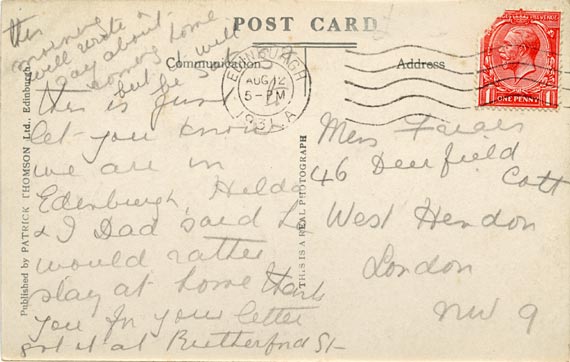 POST CARD
Communication
Address
EDINBURGH
AUG 12
5 - PM
1931
ONE PENNY
this
morning
will write &
say about
coming home
but be
will
this is just
let you know
we are in
Edinburgh, Hilda
& I Dad said he
would rather
stay at home thank
you for your letter
got it at Rutherford St
46 Deerfield
Cott
West Hendon
London
NW 9
Published by PATRICK THOMSON Ltd., Edinburgh
THIS IS A REAL PHOTOGRAPH